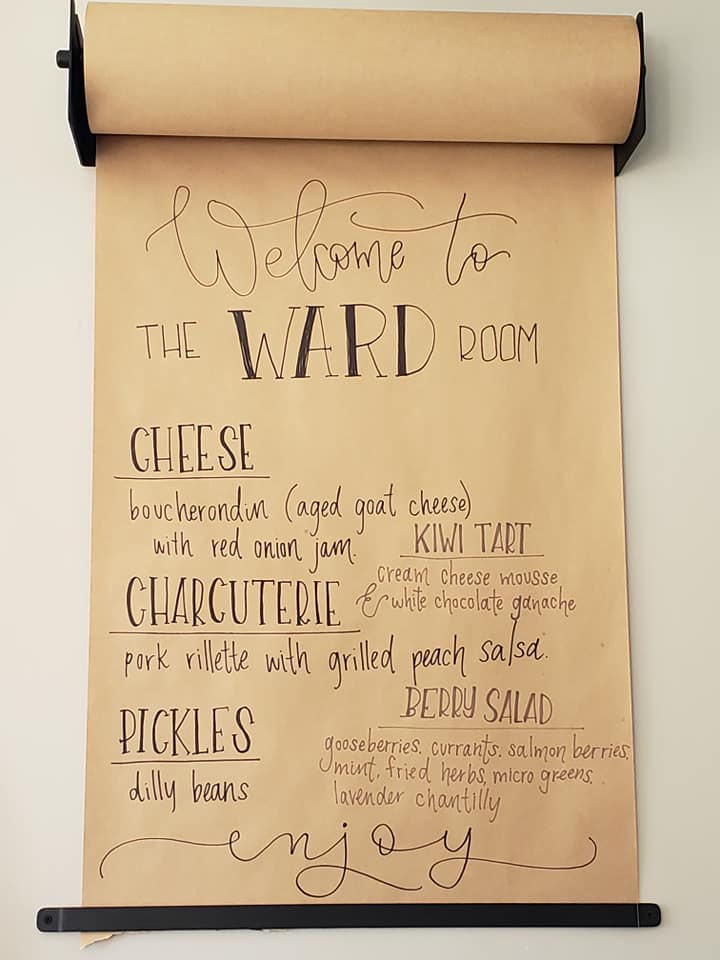 Welcome to
THE WARD ROOM
CHEESE
boucherondin (aged goat cheese)
with red onion jam.
KIWI TART
cream cheese mousse
& white chocolate ganache
CHARCUTERIE
pork rillette with grilled peach salsa.
PICKLES
dilly beans
BERRY SALAD
gooseberries, currants, salmon berries,
mint, fried herbs, micro greens,
lavender chantilly
enjoy